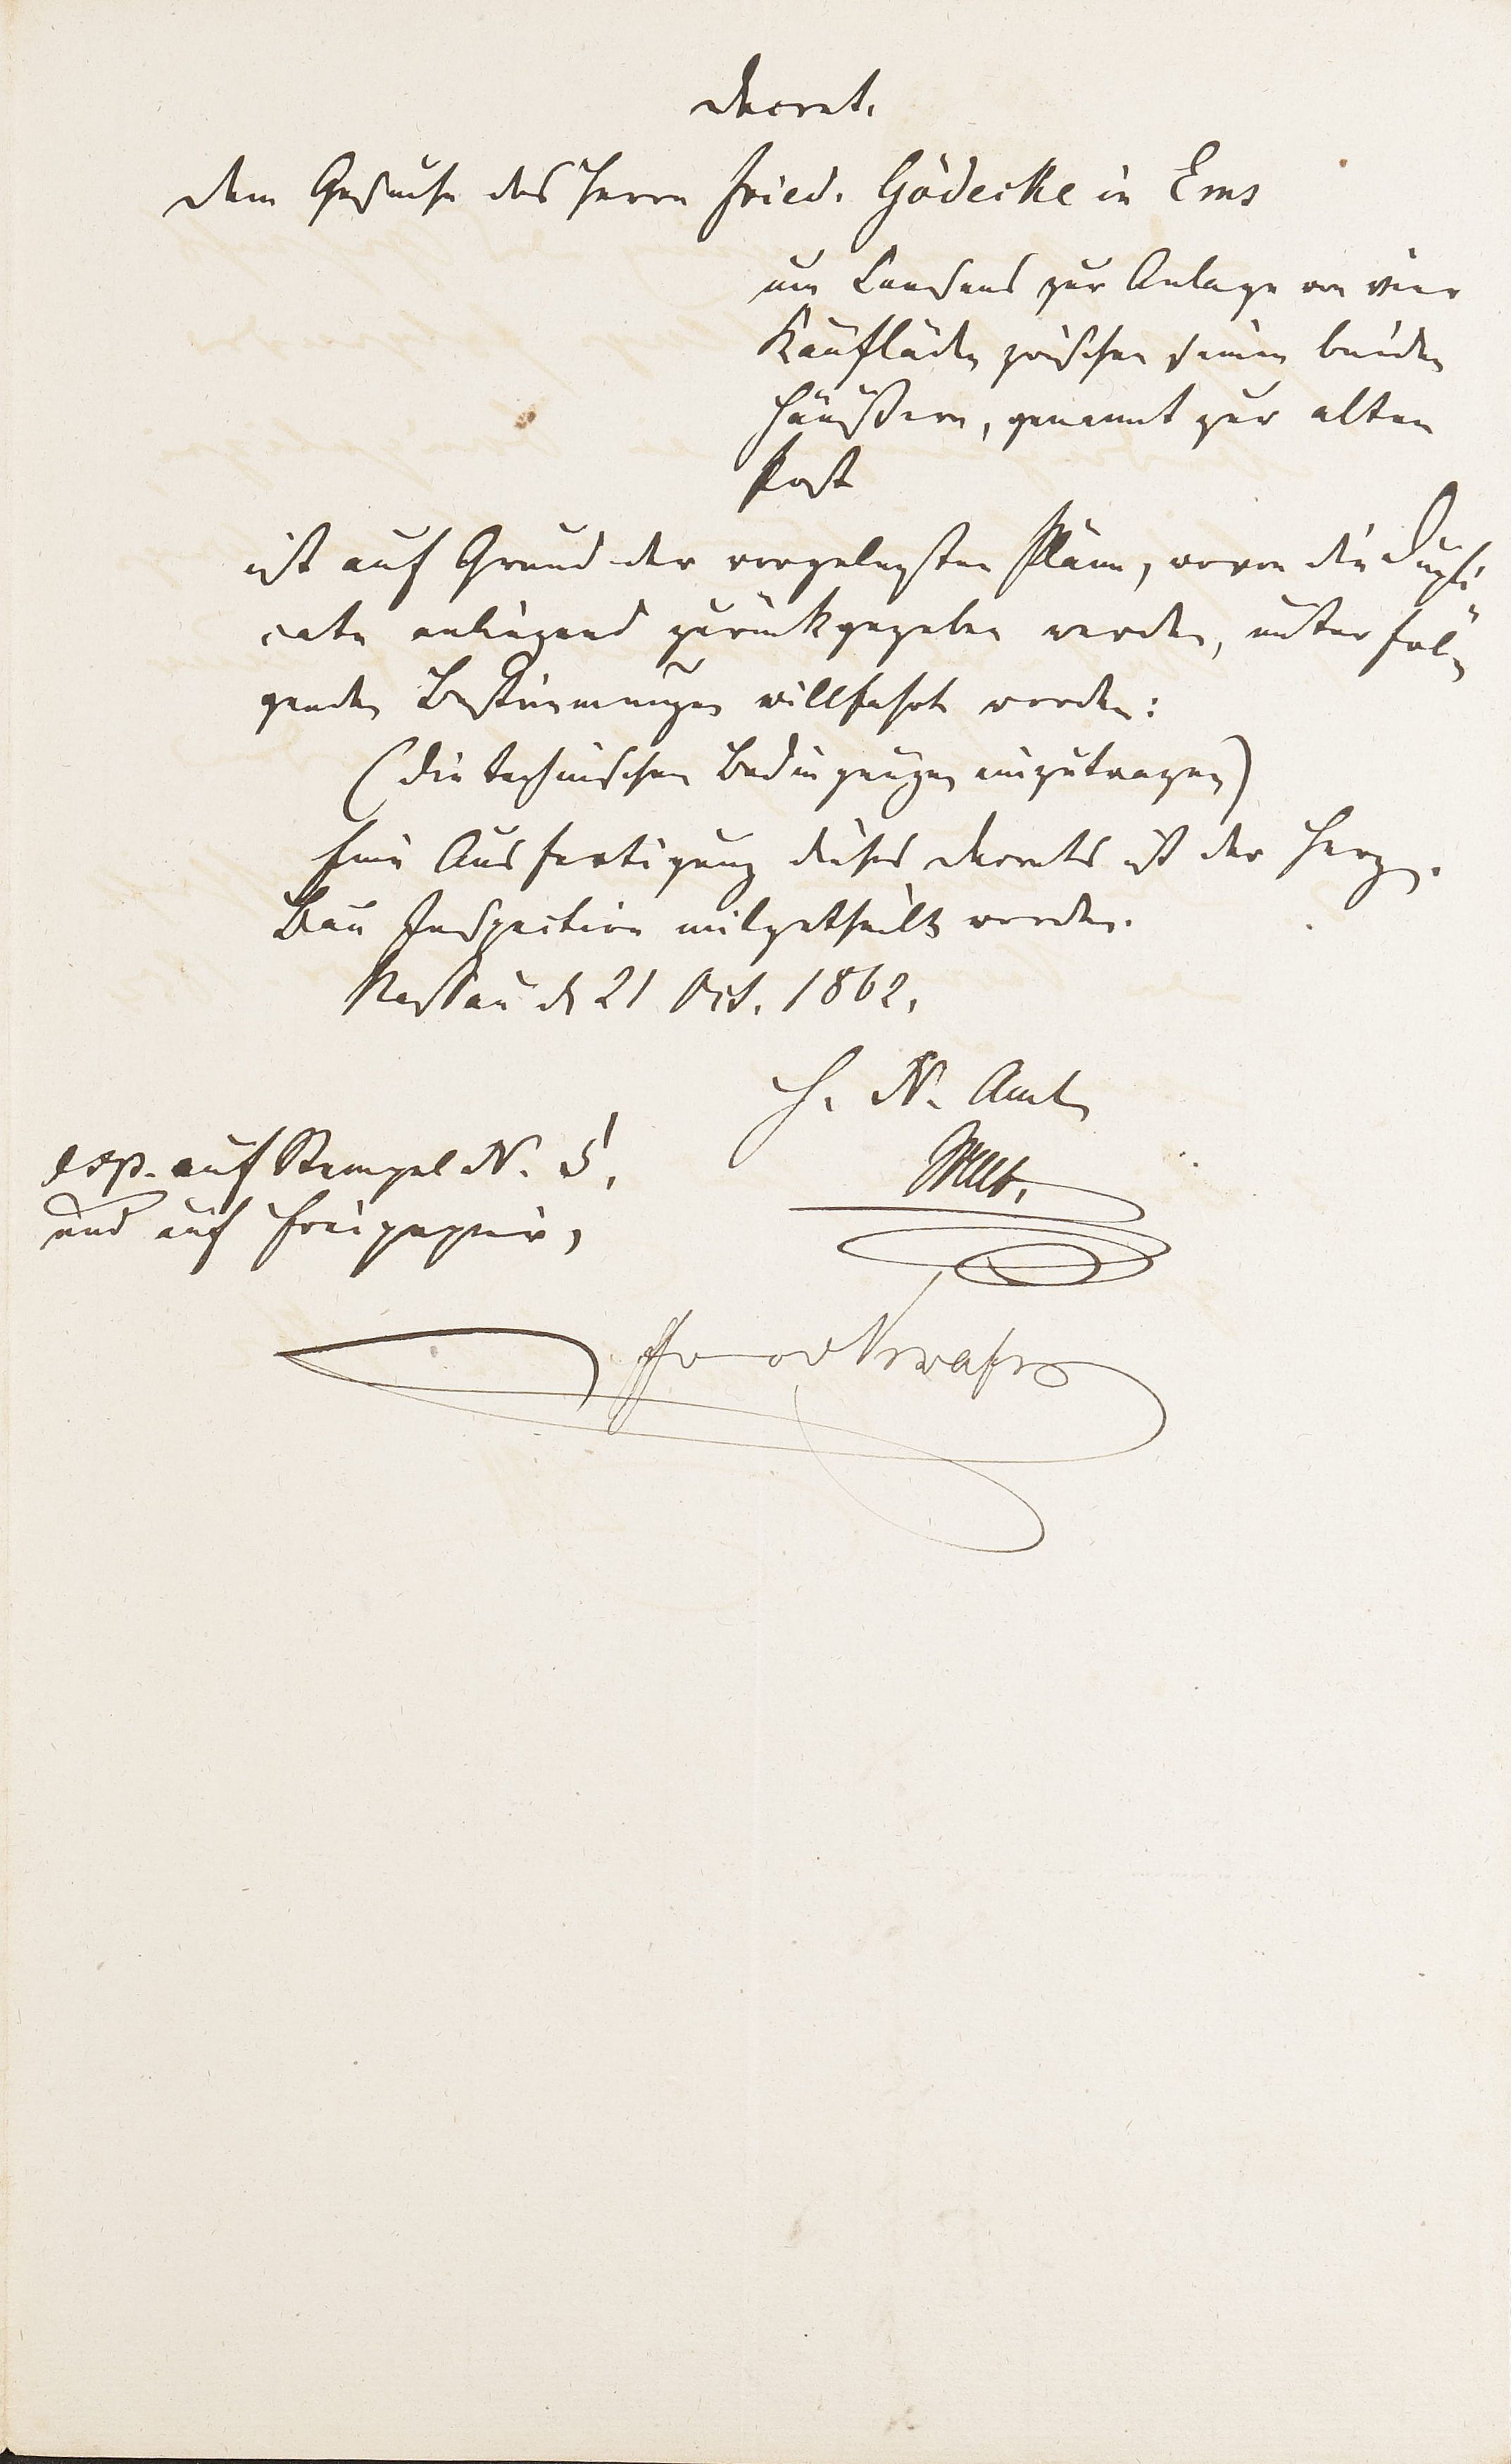 Decret.
Dem Gesuche des Herrn Fried. Gödecke in Ems
um Consens zur Anlage von vier
Kaufläden zwischen seinen beiden
Häußern, genannt zur alten
Post
ist auf Grund der vorgelegten Pläne, wovon die Dupli
cate anliegend zurückgegeben werden, unter fol„
genden Bestimmungen willfahrt worden:
(die technischen Bedingungen einzutragen)
Eine Ausfertigung dieses Decrets ist der Herzg.
Bau Inspection mitgetheilt worden.
Nassau d 21 Oct. 1862.
H. N. Amt
exp. auf Stempel N. 5,
und auf Freipapier,